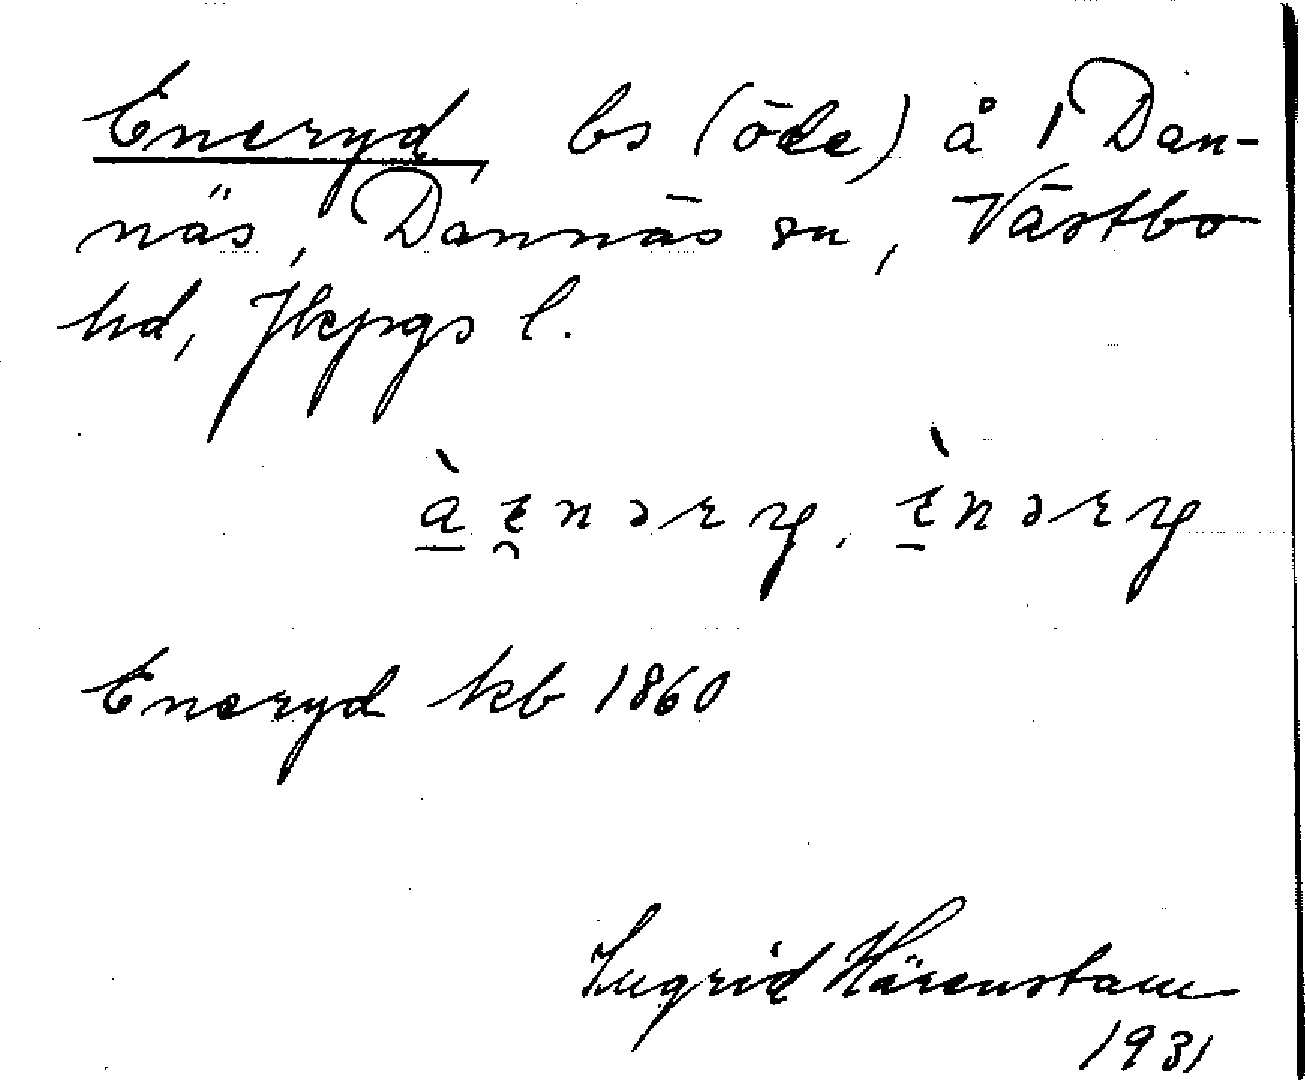 Eneryd bs (öde) å 1 Dan-
näs, Dannäs sn, Västbo
hd, Jkpgs l.
Eneryd kb 1860
Ingrid Härenstam
1931